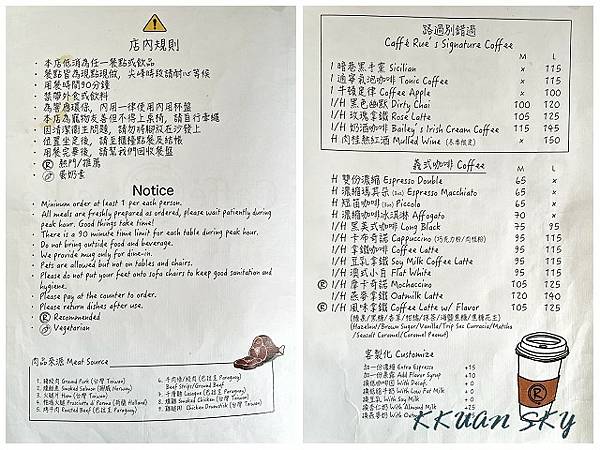 店內規則
· 本店低消為任一餐點或飲品
· 餐點皆為現點現做，尖峰時段請耐心等候
· 用餐時間90分鐘
· 禁帶外食或飲料
· 為響應環保，內用一律使用內用杯盤
· 本店為寵物友善但不得上桌椅，請自行牽繩
· 因清潔衛生問題，請勿將腳放在沙發上
· 位置坐定後，請至櫃檯點餐及結帳
· 用餐完畢後，請幫我們回收餐盤
Ⓡ 熱門/推薦
蛋奶素
Notice
· Minimum order at least 1 per each person.
· All meals are freshly prepared as ordered, please wait patiently during
peak hour. Good things take time!
· There is a 90 minute time limit for each table during peak hour.
· Do not bring outside food and beverage.
· We provide mug only for dine-in.
· Pets are allowed but not on tables and chairs.
· Please do not put your feet onto sofa chairs to keep good sanitation and
hygiene.
· Please pay at the counter to order.
· Please return dishes after use.
Ⓡ Recommended
Vegetarian
肉品來源 Meat Source
1. 豬絞肉 Ground Pork (台灣 Taiwan)
2. 燻鮭魚 Smoked Salmon (挪威 Norway)
3. 火腿片 Ham (台灣 Taiwan)
4. Prosciutto di Parma (荷蘭 Holland)
5. 烤牛肉 Roasted Beef (巴拉圭 Paraguay)
6. 牛肉條/絞肉 (巴拉圭 Paraguay)
Beef Strips/Ground Beef
7. 千層麵 Lasagne (巴拉圭 Paraguay)
8. 燻雞 Smoked Chicken (台灣 Taiwan)
9. 雞腿肉 Chicken Drumstick (台灣 Taiwan)
路過別錯過
Caffé Rue's Signature Coffee
M L
I 暗巷黑手黨 Sicilian × 115
I 通寧氣泡咖啡 Tonic Coffee × 115
I 牛頓定律 Coffee Apple × 100
I/H 黑色幽默 Dirty Chai 100 120
I/H 玫瑰拿鐵 Rose Latte 105 125
I/H 奶酒咖啡 Bailey's Irish Cream Coffee 115 145
H 肉桂熱紅酒 Mulled Wine (冬季限定) × 150
義式咖啡 Coffee
M L
H 雙份濃縮 Espresso Double 65 ×
H 濃縮瑪其朵 Espresso Macchiato 65 ×
H 短笛咖啡 Piccolo 65 ×
H 濃縮咖啡冰淇淋 Affogato 70 ×
I/H 黑美式咖啡 Long Black 75 95
I/H 卡布奇諾 Cappuccino (巧克力粉/肉桂粉) 95 115
I/H 拿鐵咖啡 Coffee Latte 95 115
I/H 豆乳拿鐵 Soy Milk Coffee Latte 95 115
I/H 澳式小白 Flat White 95 115
Ⓡ I/H 摩卡奇諾 Mochaccino 105 125
I/H 燕麥拿鐵 Oatmilk Latte 120 140
Ⓡ I/H 風味拿鐵 Coffee Latte w/ Flavor 105 125
(Hazelnut/Brown Sugar/Vanilla/Trip Sec Curracio/Matcha
/Seasalt Caramel/Caramel Peanut)
客製化 Customize
加一份濃縮 Extra Espresso +15
加一份果露 Add Flavor Syrup +10
換低咖啡因 With Decaf.
換低脂牛奶 With Low Fat Milk
換豆乳 With Soy Milk
換杏仁奶 With Almond Milk +25
換燕麥奶 With Oat
KKUAN SKY